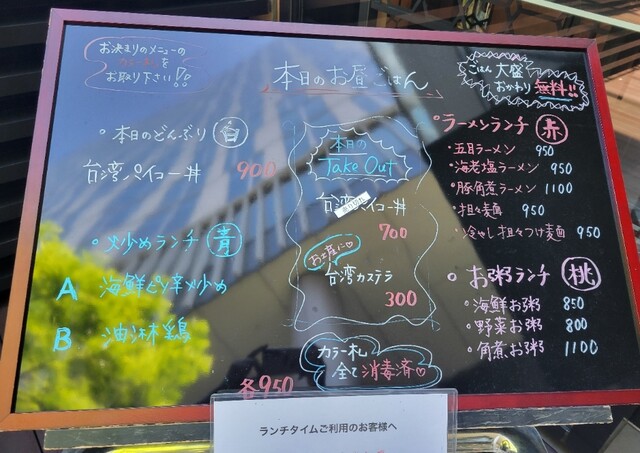 お決まりのメニューの
カラー札を
お取り下さい!!
本日のお昼ごはん
ごはん 大盛
おかわり 無料!!
本日のどんぶり 白
台湾パイコー丼 900
炒めランチ 青
A 海鮮ピリ辛炒め
B 油淋鶏
各950
本日の
Take Out
台湾パイコー丼
700
お土産に♡
台湾カステラ
300
カラー札
全て消毒済♡
ラーメンランチ 赤
・五目ラーメン 950
・海老塩ラーメン 950
・豚角煮ラーメン 1100
・担々麺 950
・冷やし担々つけ麺 950
お粥ランチ 桃
・海鮮お粥 850
・野菜お粥 800
・角煮お粥 1100
ランチタイムご利用のお客様へ